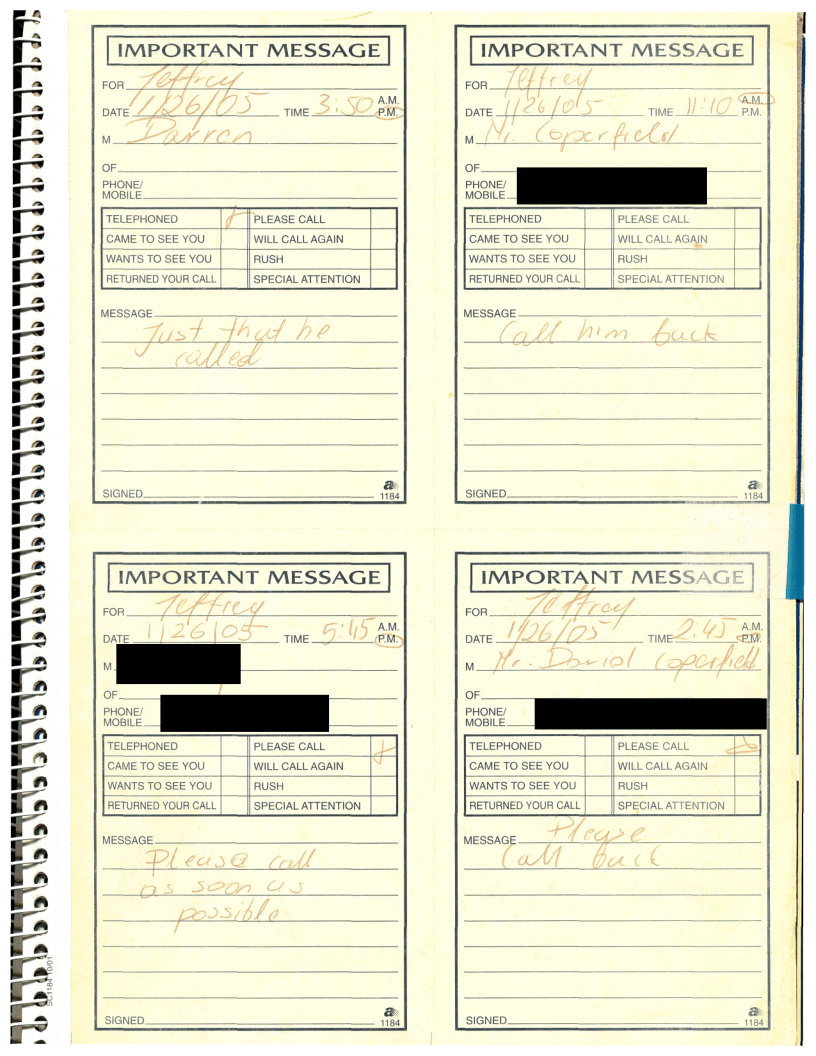 IMPORTANT MESSAGE
FOR Jeffrey
DATE 1/26/05 TIME 3:50 A.M. P.M.
M Darren
OF
PHONE/
MOBILE
TELEPHONED PLEASE CALL
CAME TO SEE YOU WILL CALL AGAIN
WANTS TO SEE YOU RUSH
RETURNED YOUR CALL SPECIAL ATTENTION
MESSAGE
Just that he
called
SIGNED
a 1184
IMPORTANT MESSAGE
FOR Jeffrey
DATE 1/26/05 TIME 11:10 A.M. P.M.
M Mr. Coperfield
OF
PHONE/
MOBILE
TELEPHONED PLEASE CALL
CAME TO SEE YOU WILL CALL AGAIN
WANTS TO SEE YOU RUSH
RETURNED YOUR CALL SPECIAL ATTENTION
MESSAGE
Call him back
SIGNED
a 1184
IMPORTANT MESSAGE
FOR Jeffrey
DATE 1/26/05 TIME 5:45 A.M. P.M.
M
OF
PHONE/
MOBILE
TELEPHONED PLEASE CALL
CAME TO SEE YOU WILL CALL AGAIN
WANTS TO SEE YOU RUSH
RETURNED YOUR CALL SPECIAL ATTENTION
MESSAGE
Please call
as soon as
possible
SIGNED
a 1184
IMPORTANT MESSAGE
FOR Jeffrey
DATE 1/26/05 TIME 2:45 A.M. P.M.
M Mr. David Coperfield
OF
PHONE/
MOBILE
TELEPHONED PLEASE CALL
CAME TO SEE YOU WILL CALL AGAIN
WANTS TO SEE YOU RUSH
RETURNED YOUR CALL SPECIAL ATTENTION
MESSAGE Please
Call back
SIGNED
a 1184
SC1184 10/01